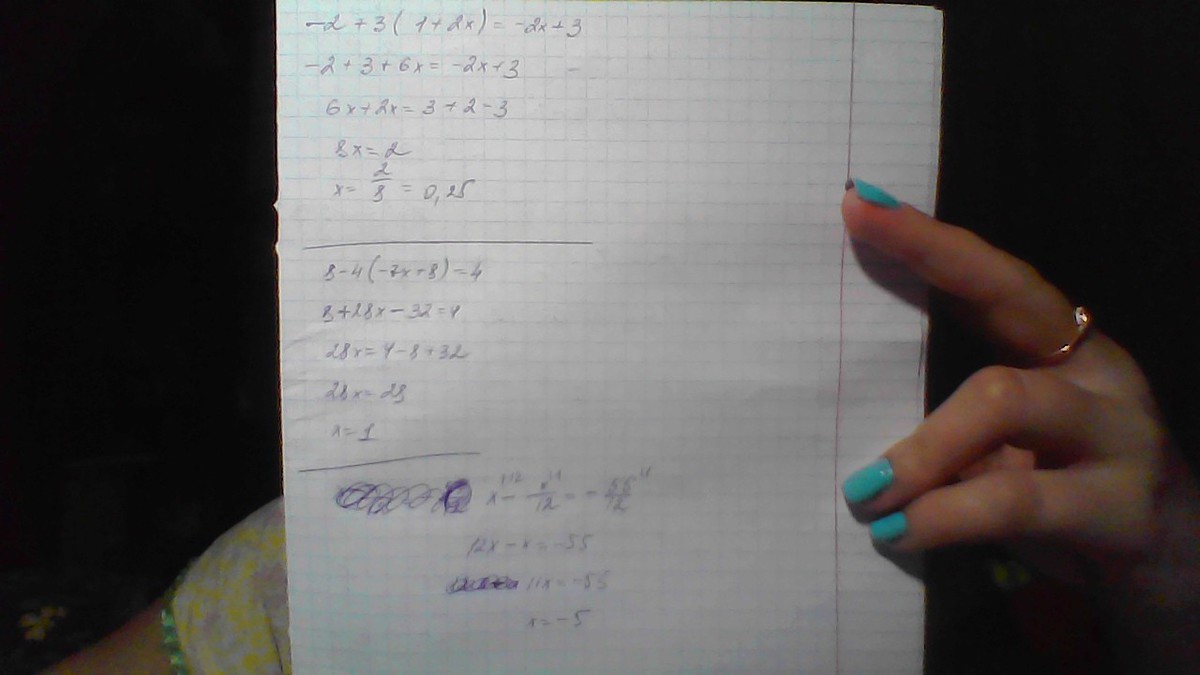 -2 + 3( 1 + 2x) = -2x + 3
-2 + 3 + 6x = -2x + 3 -
6x + 2x = 3 + 2 - 3
8x = 2
x = 2/8 = 0,25
8 - 4(-7x + 8) = 4
8 + 28x - 32 = 4
28x = 4 - 8 + 32
28x = 28
x = 1
x - x/12 = - 55/12
12x - x = -55
11x = -55
x = -5